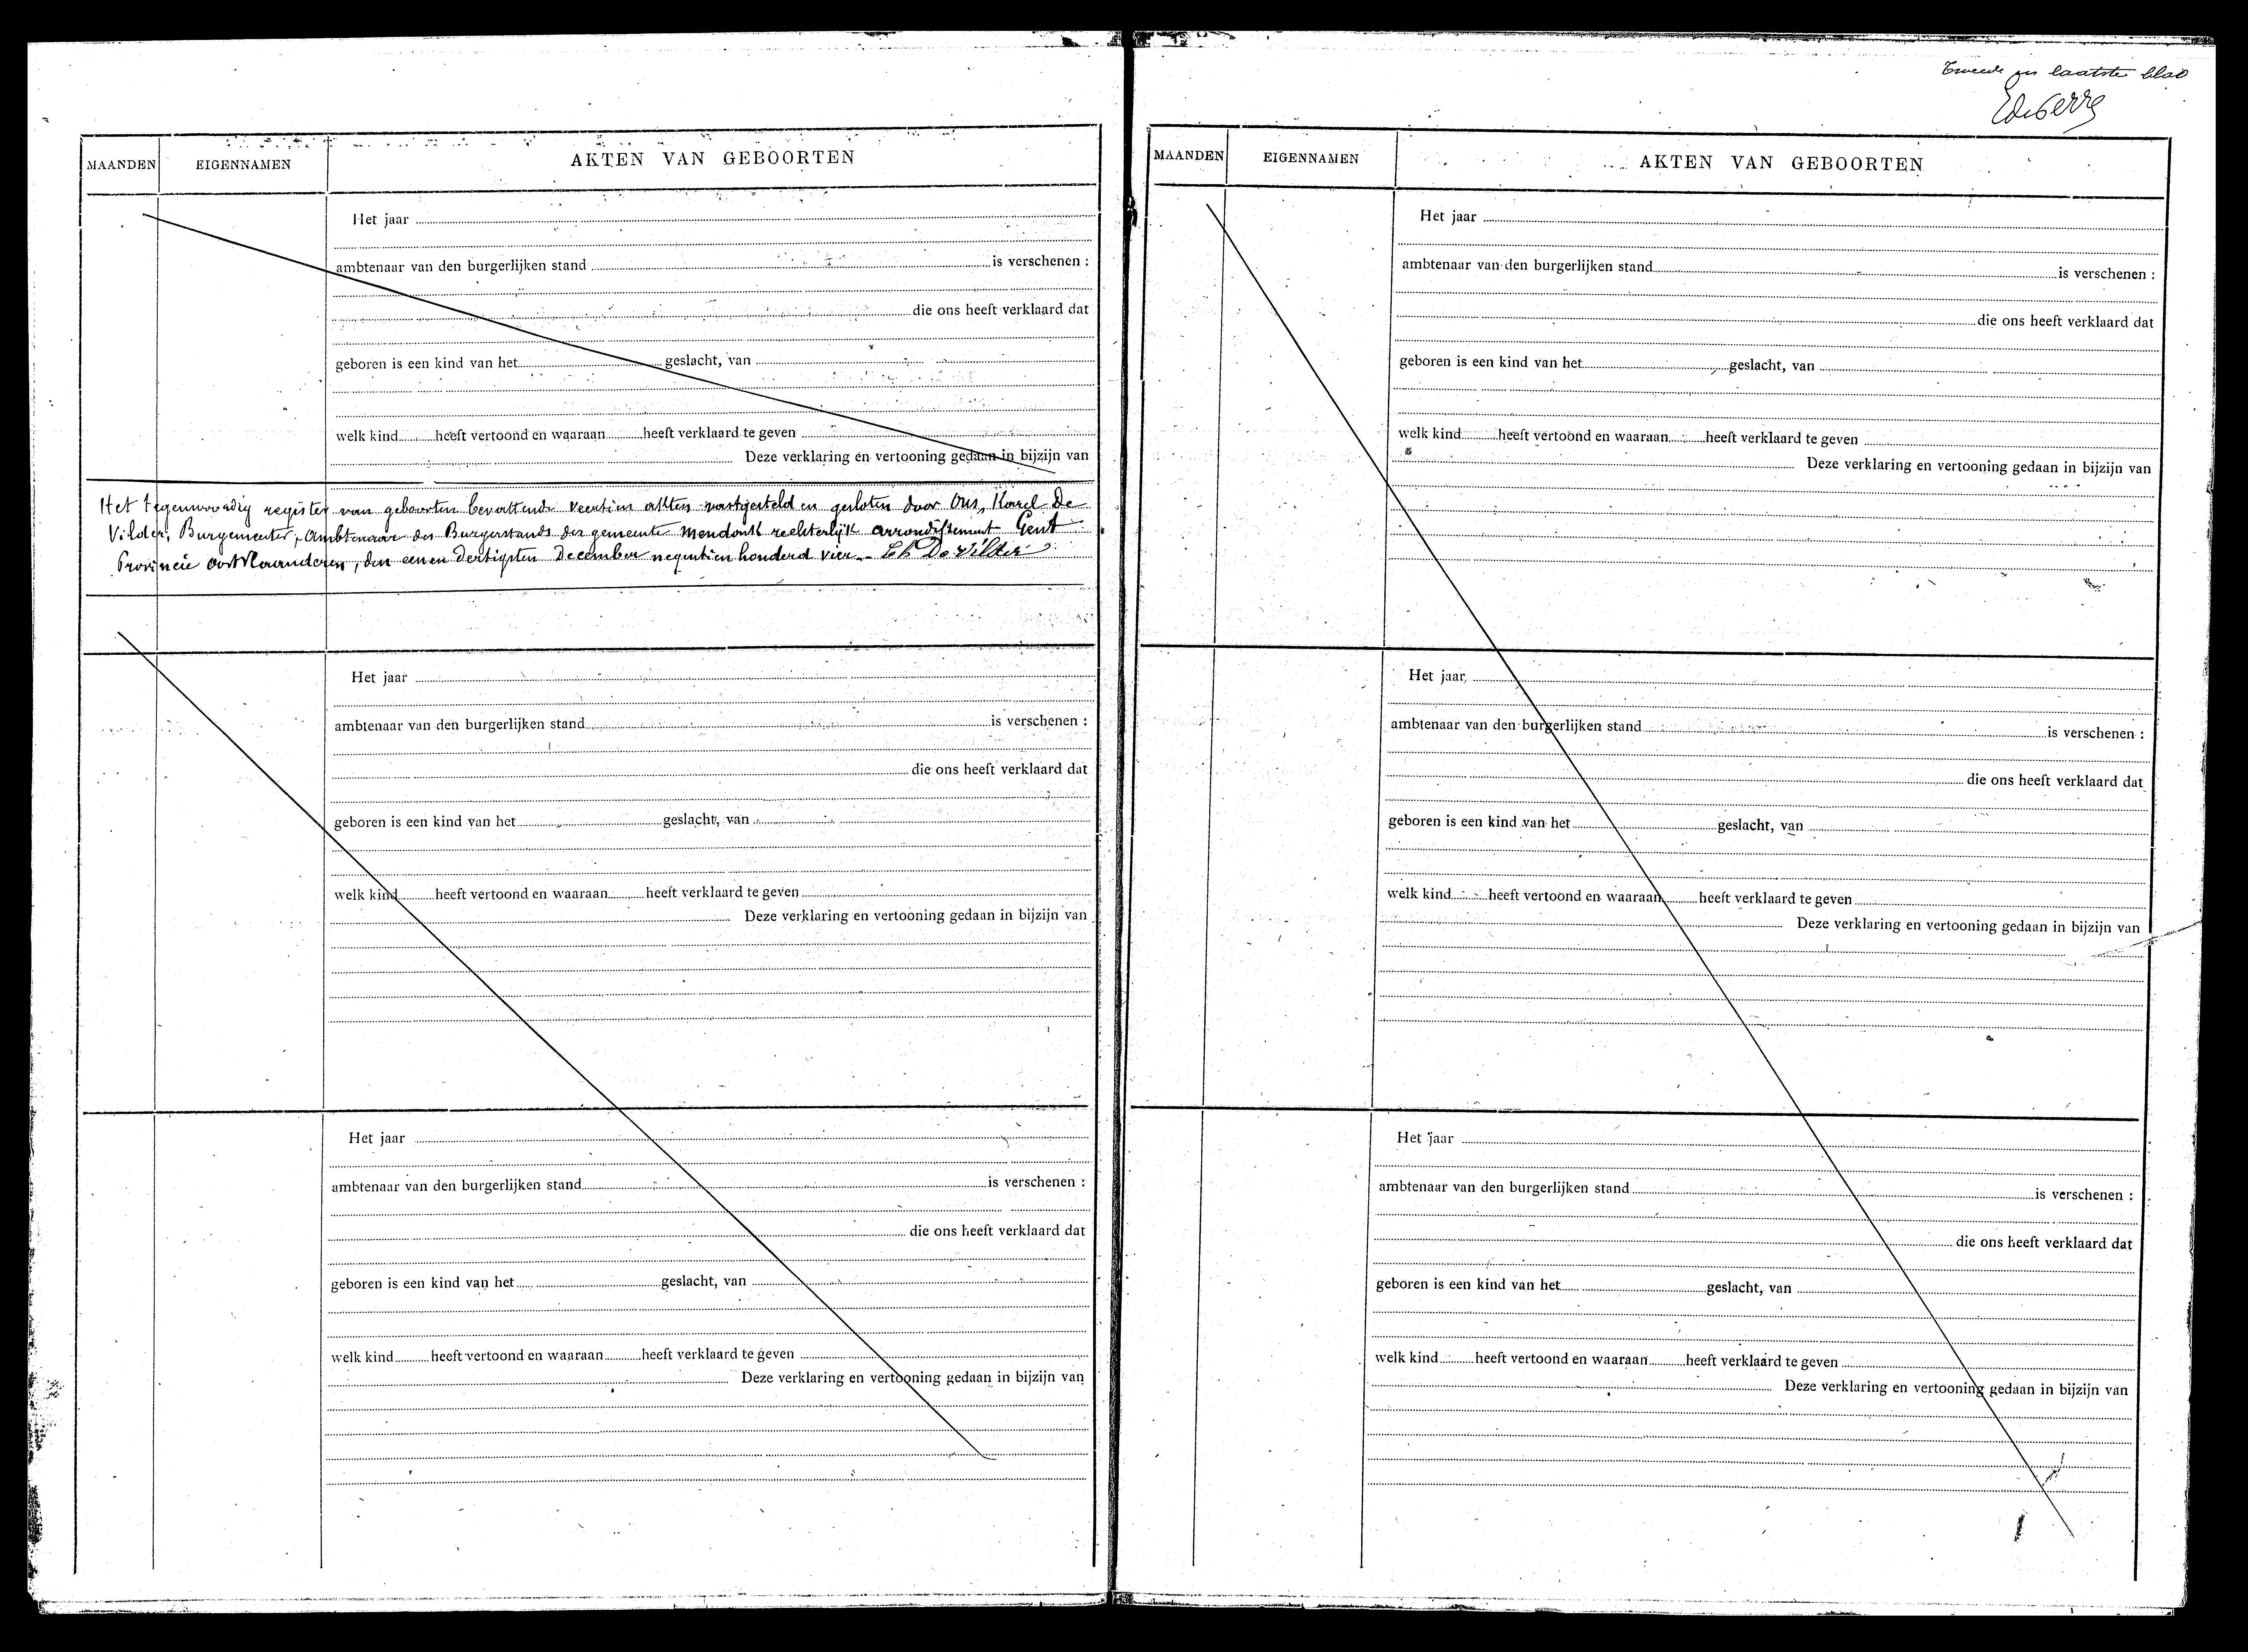 MAANDEN EIGENNAMEN AKTEN VAN GEBOORTEN
Het jaar
ambtenaar van den burgerlijken stand is verschenen :
die ons heeft verklaard dat
geboren is een kind van het geslacht, van
welk kind heeft vertoond en waaraan heeft verklaard te geven
Deze verklaring en vertooning gedaan in bijzijn van
Het tegenwoordig register van geboorten bevattende veertien akten vastgesteld en gesloten door Ons, Karel De
Vilder, Burgemeester, Ambtenaar des Burgerstands der gemeente Mendonk rechterlijk arrondissement Gent
Provincie Oostvlaanderen, den eenen dertigsten December negentien honderd vier. Ch De Vilder
Het jaar
ambtenaar van den burgerlijken stand is verschenen :
die ons heeft verklaard dat
geboren is een kind van het geslacht, van
welk kind heeft vertoond en waaraan heeft verklaard te geven
Deze verklaring en vertooning gedaan in bijzijn van
Het jaar
ambtenaar van den burgerlijken stand is verschenen :
die ons heeft verklaard dat
geboren is een kind van het geslacht, van
welk kind heeft vertoond en waaraan heeft verklaard te geven
Deze verklaring en vertooning gedaan in bijzijn van
Tweede en laatste blad
MAANDEN EIGENNAMEN AKTEN VAN GEBOORTEN
Het jaar
ambtenaar van den burgerlijken stand is verschenen :
die ons heeft verklaard dat
geboren is een kind van het geslacht, van
welk kind heeft vertoond en waaraan heeft verklaard te geven
Deze verklaring en vertooning gedaan in bijzijn van
Het jaar
ambtenaar van den burgerlijken stand is verschenen :
die ons heeft verklaard dat
geboren is een kind van het geslacht, van
welk kind heeft vertoond en waaraan heeft verklaard te geven
Deze verklaring en vertooning gedaan in bijzijn van
Het jaar
ambtenaar van den burgerlijken stand is verschenen :
die ons heeft verklaard dat
geboren is een kind van het geslacht, van
welk kind heeft vertoond en waaraan heeft verklaard te geven
Deze verklaring en vertooning gedaan in bijzijn van